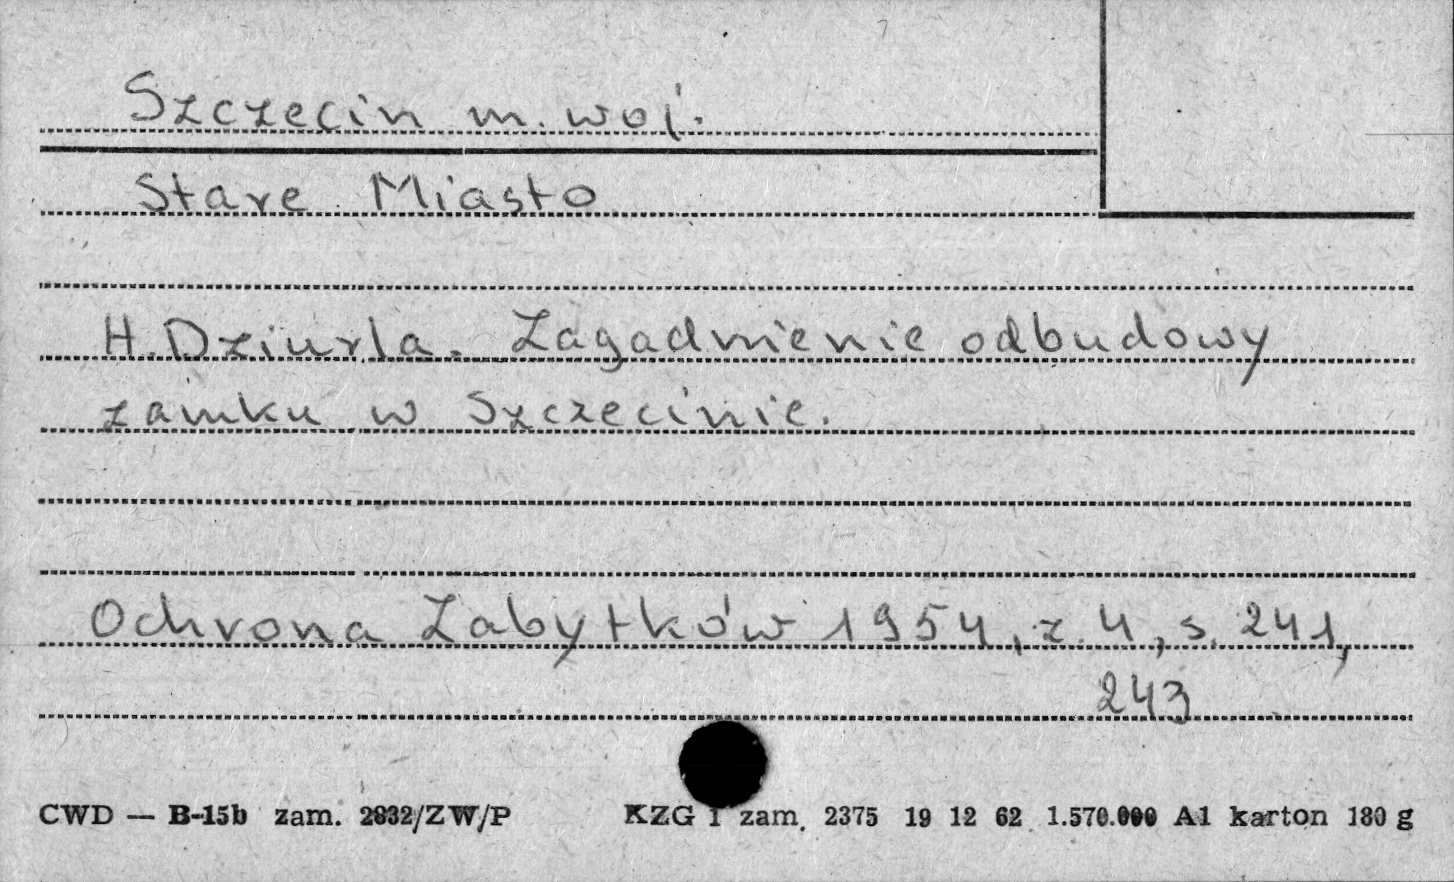 Szczecin m. woj.
Stare Miasto
H. Dziurla. Zagadnienie odbudowy
zamku w Szczecinie.
Ochrona Zabytków 1954, z. 4, s. 241,
243
CWD — B-15b zam. 2832/ZW/P KZG 1 zam. 2375 19 12 62 1.570.000 A1 karton 180 g